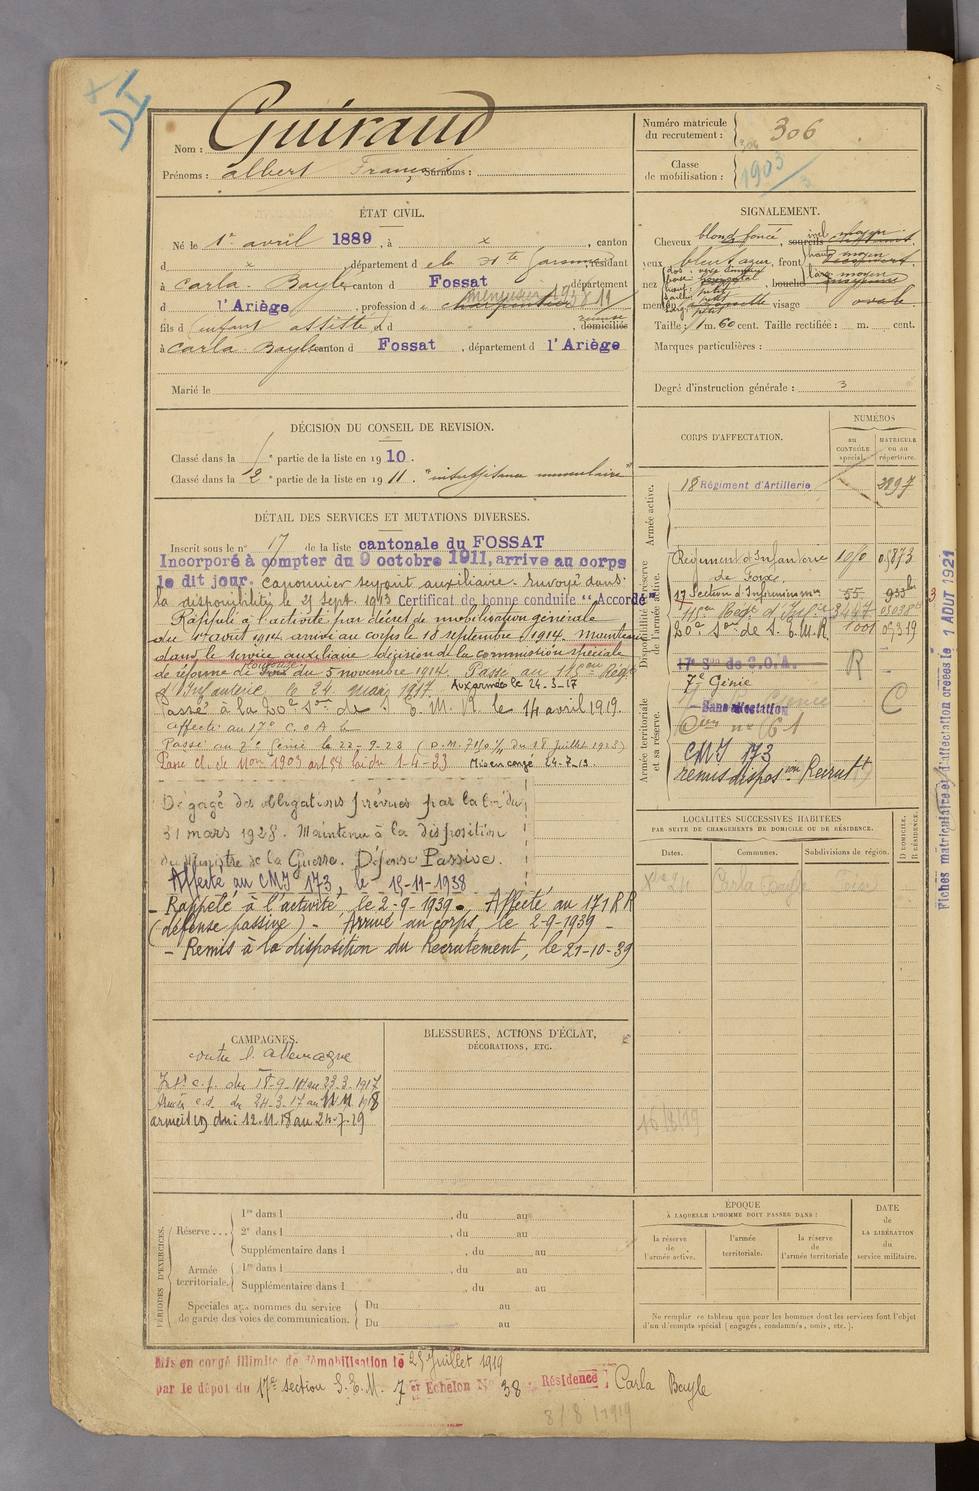 DI
Nom : Guiraud
Prénoms : albert François Surnoms :
Numéro matricule du recrutement : 306
Classe de mobilisation : 1903
ÉTAT CIVIL.
Né le 1er avril 1889, à x, canton
d x, département de la Hte Garonne, résidant
à Carla-Bayle canton d Fossat, département
d l'Ariège, profession de charpentier menuisier
fils d (enfant assisté) et d , domiciliés
à Carla-Bayle canton d Fossat, département d l'Ariège
Marié le
SIGNALEMENT.
Cheveux blond foncé, sourcils
yeux bleu azur, front
nez , bouche
menton visage ovale
Taille : 1 m. 60 cent. Taille rectifiée : m. cent.
Marques particulières :
Degré d'instruction générale : 3
DÉCISION DU CONSEIL DE REVISION.
Classé dans la e partie de la liste en 1910.
Classé dans la 2e partie de la liste en 1911. "insuffisance musculaire"
DÉTAIL DES SERVICES ET MUTATIONS DIVERSES.
Inscrit sous le n° 17 de la liste cantonale du FOSSAT
Incorporé à compter du 9 octobre 1911, arrive au corps
le dit jour. Canonnier servant auxiliaire. Envoyé dans
la disponibilité le 25 sept. 1913 Certificat de bonne conduite "Accordé"
Rappelé à l'activité par décret de mobilisation générale
du 1er août 1914 arrivé au corps le 18 septembre 1914. maintenu
dans le service auxiliaire décision de la commission spéciale
de réforme de Foix du 5 novembre 1914. Passé au 115eme Régt
d'Infanterie le 24 mars 1917. Aux armées le 24-3-17
Passé à la 20e Son de S. E. M. R. le 14 avril 1919.
affecté au 17e C.O.A le
Passé au 7e Génie le 22-9-23 (D.M. 7110 1/11 du 18 juillet 1923)
Passé cl. de Mon 1903 art 58 loi du 1-4-23 Mis en congé 24-7-19
Dégagé des obligations prévues par la loi du
31 mars 1928. Maintenu à la disposition
du Ministre de la Guerre. Défense Passive.
Affecté au CMI 173, le 15-11-1938
- Rappelé à l'activité, le 2-9-1939. Affecté au 171 RR
(défense passive) - Arrivé au corps le 2-9-1939 -
- Remis à la disposition du Recrutement, le 21-10-39
CORPS D'AFFECTATION.
NUMÉROS
AU CONTRÔLE spécial.
MATRICULE ou au répertoire.
Armée active.
18 Régiment d'Artillerie 2897
Disponibilité et réserve de l'armée active.
Régiment d'Infanterie de Foix. 1010 05873
17 Section d'Infirmiers mres 55 933bis
115eme Regt d'Infie 3447
20e Son de S. E. M. R. 1001 05319
17e Son de C.O.A. R -
Armée territoriale et sa réserve.
7e Génie -
Sans affectation C
n° 61
CMI 173
remis disposion Recrutt
LOCALITÉS SUCCESSIVES HABITÉES
PAR SUITE DE CHANGEMENTS DE DOMICILE OU DE RÉSIDENCE.
Dates. Communes. Subdivisions de région. D DOMICILE. R RÉSIDENCE.
Xbre 24 Carla Bayle Foix
16/8/19
CAMPAGNES.
contre l'allemagne
Intr c.s. du 18-9-14 au 23-3-1917
Armées c.d. du 24-3-17 au 11 11 1918
armées du : 12-11-18 au 24-7-19
BLESSURES, ACTIONS D'ÉCLAT,
DÉCORATIONS, ETC.
PÉRIODES D'EXERCICES.
Réserve... 1re dans l , du au
2e dans l , du au
Supplémentaire dans l , du au
Armée territoriale. 1re dans l , du au
Supplémentaire dans l , du au
Spéciales aux hommes du service de garde des voies de communication. Du au
Du au
ÉPOQUE
À LAQUELLE L'HOMME DOIT PASSER DANS :
la réserve de l'armée active.
l'armée territoriale.
la réserve de l'armée territoriale
DATE DE LA LIBÉRATION du service militaire.
Ne remplir ce tableau que pour les hommes dont les services font l'objet
d'un décompte spécial (engagés, condamnés, omis, etc.).
Mis en congé illimité de démobilisation le 25 Juillet 1919
par le dépôt du 17e section S.E.M. 7er Echelon N° 38 Résidence Carla Bayle
8/8/1919
Fiches matriculaire et d'affectation créées le 1 AOUT 1921